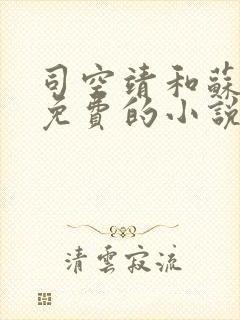 司空靖和蘇
免費的小說
清雲寂流